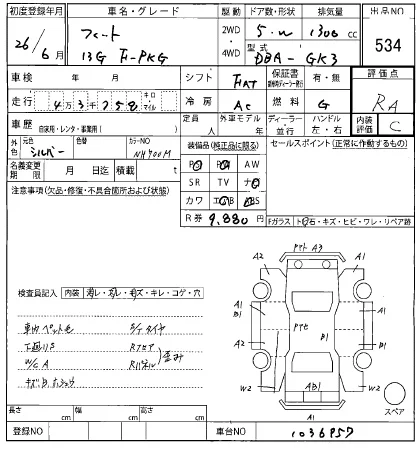 初度登録年月 車名・グレード 駆動 ドア数・形状 排気量 出品NO
26/6月 フィット 2WD・4WD 5・W 1300 cc 534
13G F-PKG 型式 DBA-GK3
車検 年 月 シフト FAT 保証書 有・無 評価点
走行 4万3千258 キロ マイル 冷房 AC 燃料 G RA
車歴 自家用・レンタ・事業用( ) 定員 人 外車モデル 年 ディーラー・並行 ハンドル 左・右 内装評価 C
外色 元色 シルバー 色替 カラーNO NH700M 装備品(純正品に限る) セールスポイント(正常に動作するもの)
名義変更期限 月 日迄 積載 t PS PW AW
注意事項(欠品・修復・不具合箇所および状態) SR TV ナビ
カワ エアB ABS
R券 9,880円
Fガラス ト石・キズ・ヒビ・ワレ・リペア跡
PァトA3
A2 A1
検査員記入 内装 汚レ・ヌレ・キズ・キレ・コゲ・穴
A1 B1 Pァセ B1 A1
車内ペット毛 S/Tタイヤ
下廻りS Rフロア
W/C A Rパネル 歪み
A2 W2 AB1 W2
A1 スペア
長さ cm 幅 cm 高さ cm
登録NO 車台NO 1036957